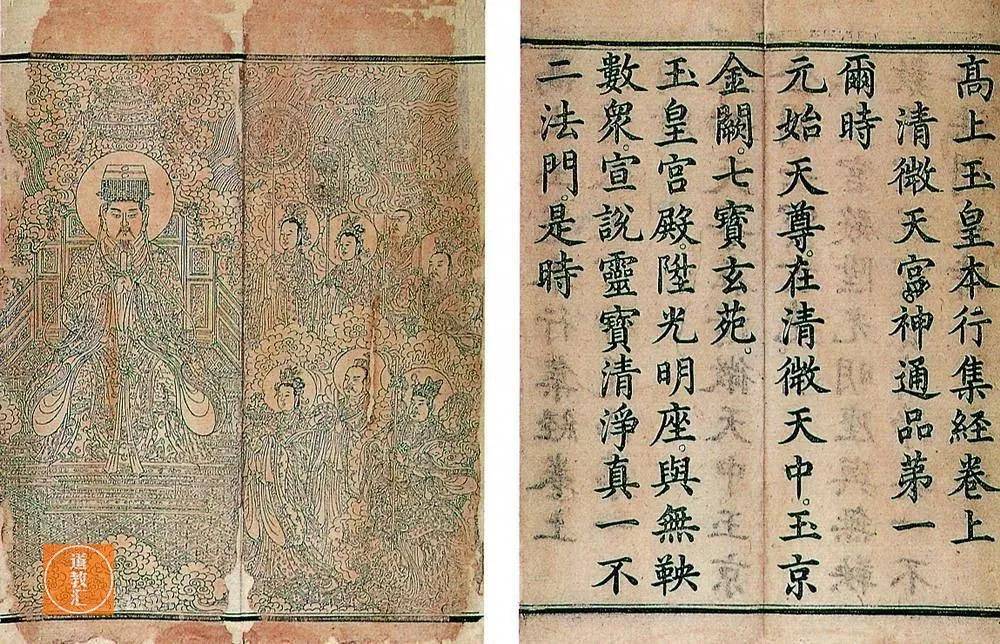 高上玉皇本行集經卷上
清微天宮神通品第一
爾時
元始天尊。在清微天中。玉京
金闕。七寶玄苑。
玉皇宮殿。陞光明座。與無鞅
數眾。宣說靈寶清淨真一不
二法門。是時
道教汇